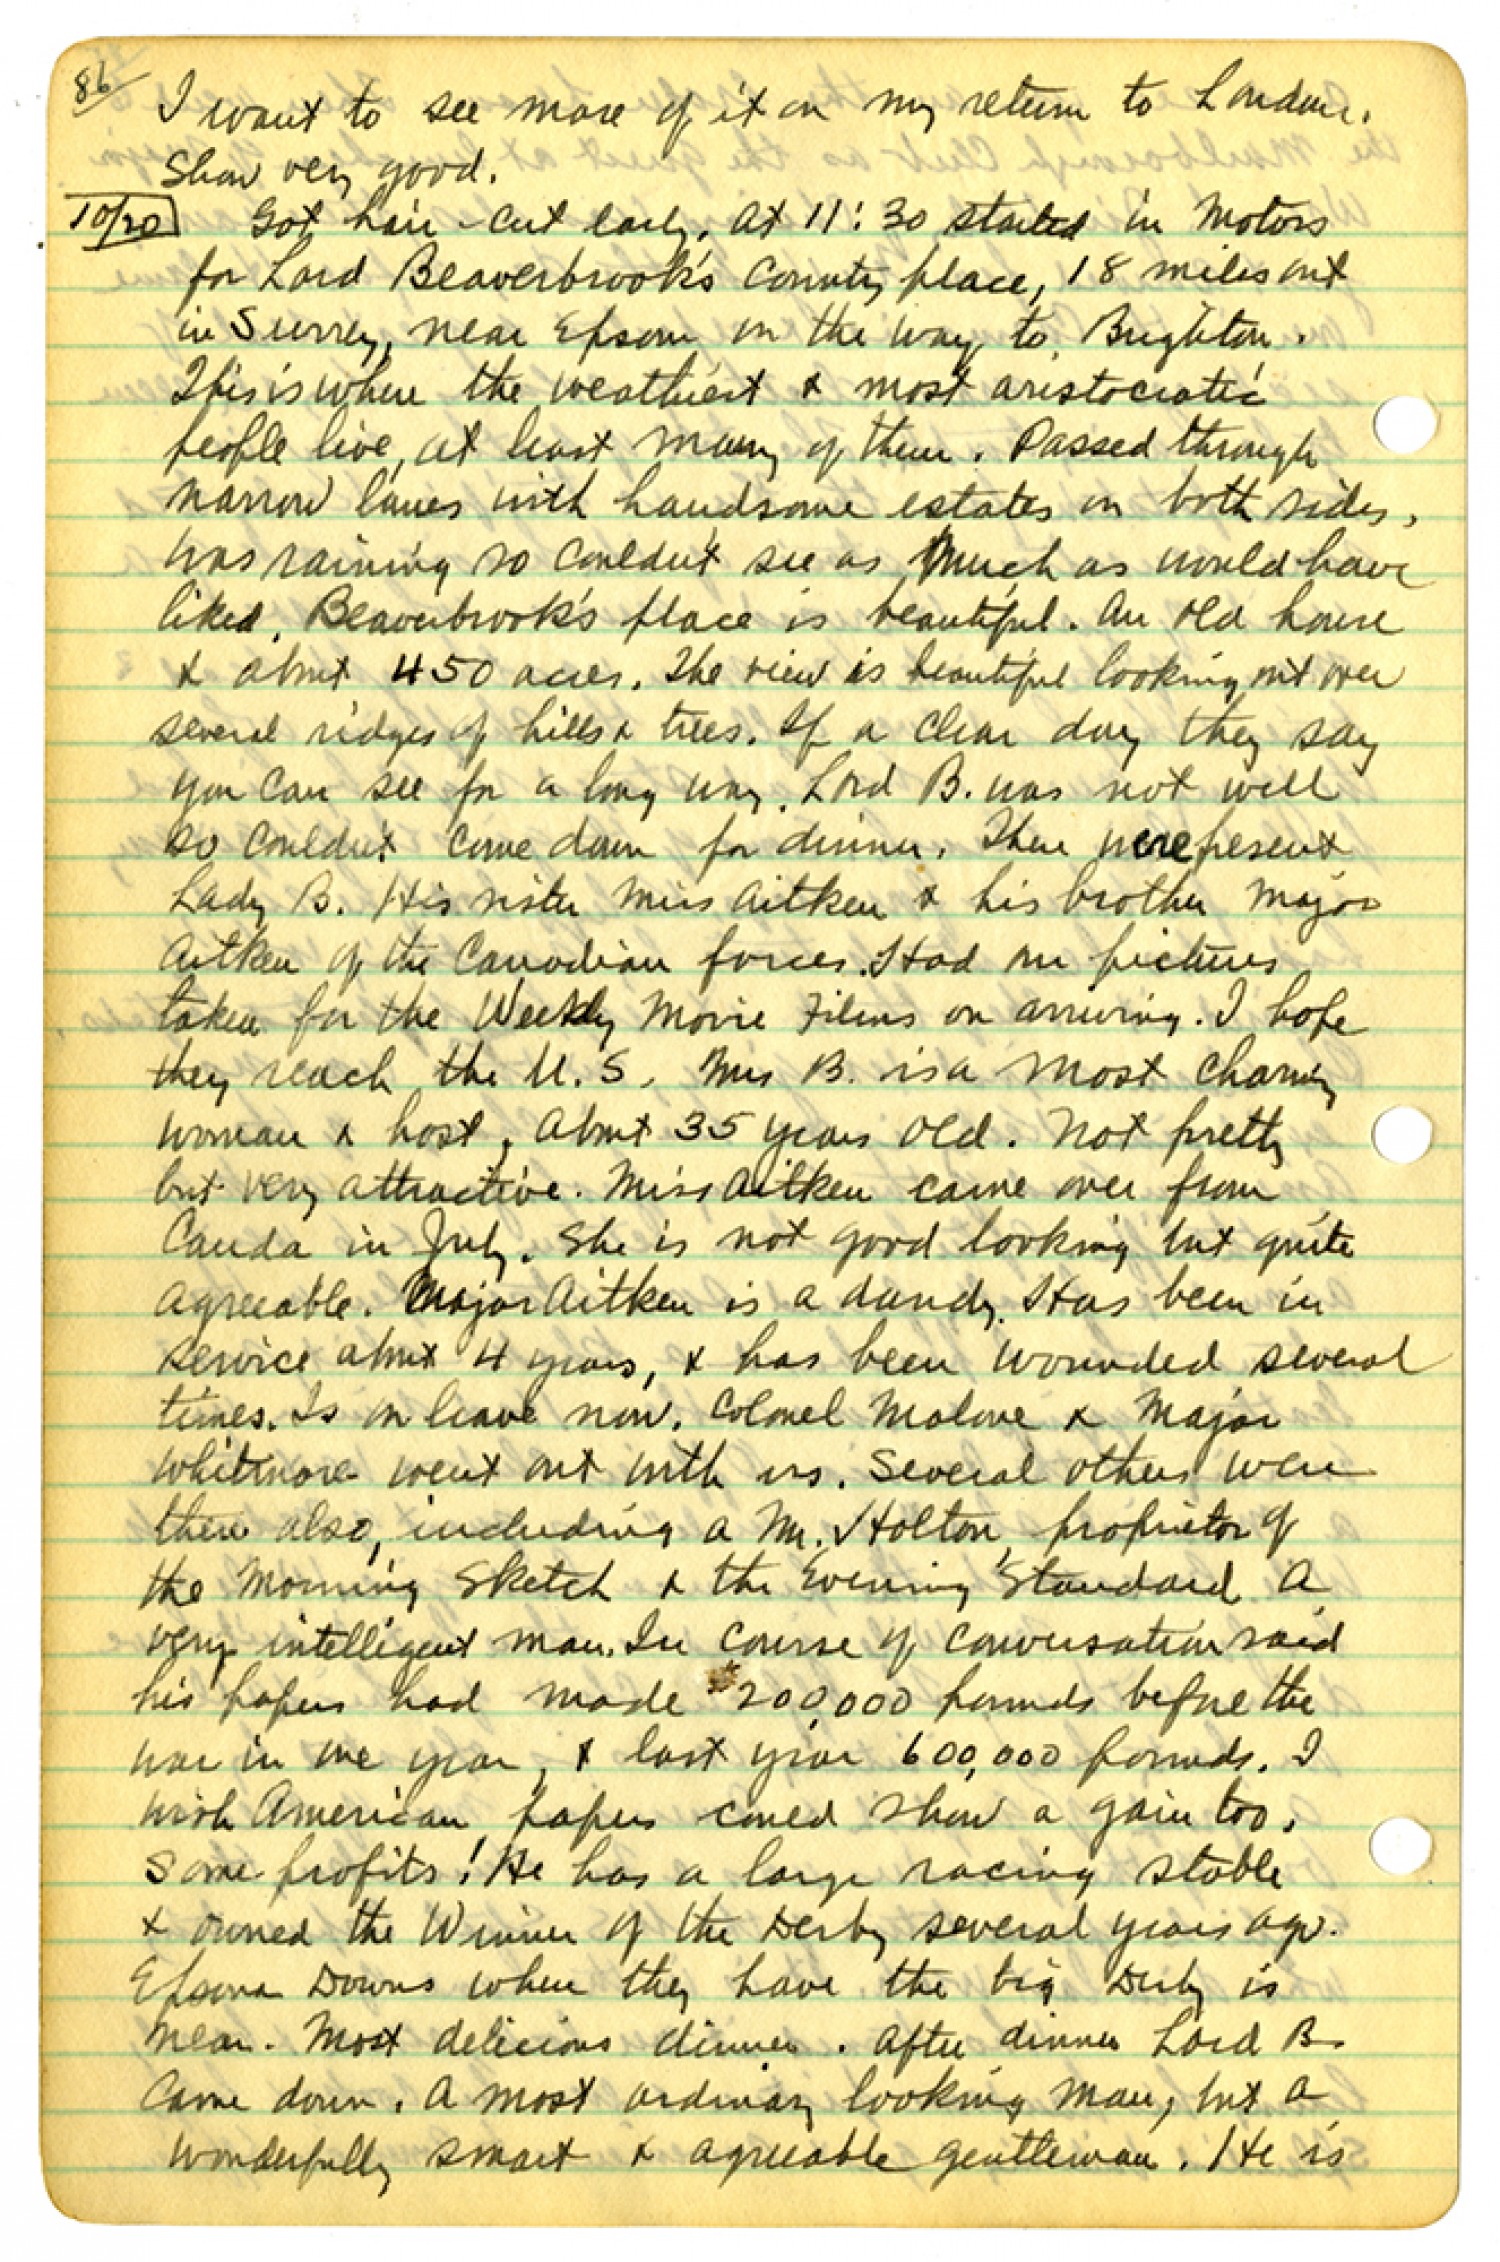 86
I want to see more of it on my return to London.
Show very good.
10/20 Got hair-cut early. At 11:30 started in motors
for Lord Beaverbrook's Country place, 18 miles out
in Surrey, near Epsom on the way to Brighton.
This is where the weathiest & most aristocratic
people live, at least many of them. Passed through
narrow lanes with handsome estates on both sides,
was raining so couldn't see as much as would have
liked. Beaverbrook's place is beautiful. An old house
& about 450 acres. The view is beautiful looking out over
several ridges of hills & trees. If a clear day they say
you can see for a long way. Lord B. was not well
so couldn't come down for dinner. There were present
Lady B. His sister Miss Aitken & his brother Major
Aitken of the Canadian forces. Had our pictures
taken for the Weekly Movie Films on arriving. I hope
they reach the U.S. Mrs B. is a most charming
woman & host, about 35 years old. Not pretty
but very attractive. Miss Aitken came over from
Canda in July. She is not good looking but quite
agreeable. Major Aitken is a dandy. Has been in
service about 4 years, & has been wounded several
times. Is on leave now. Colonel Malone & Major
Whitmore went out with us. Several others were
there also, including a Mr. Holton, proprietor of
the Morning Sketch & the Evening Standard. A
very intelligent man. In course of conversation said
his papers had made 200,000 pounds before the
war in one year, & last year 600,000 pounds. I
wish American papers could show a gain too.
Some profits! He has a large racing stable
& owned the Winner of the Derby several years ago.
Epsom Downs where they have the big Derby is
near. Most delicious dinner. After dinner Lord B.
came down. A most ordinary looking man, but a
wonderfully smart & agreeable gentleman. He is